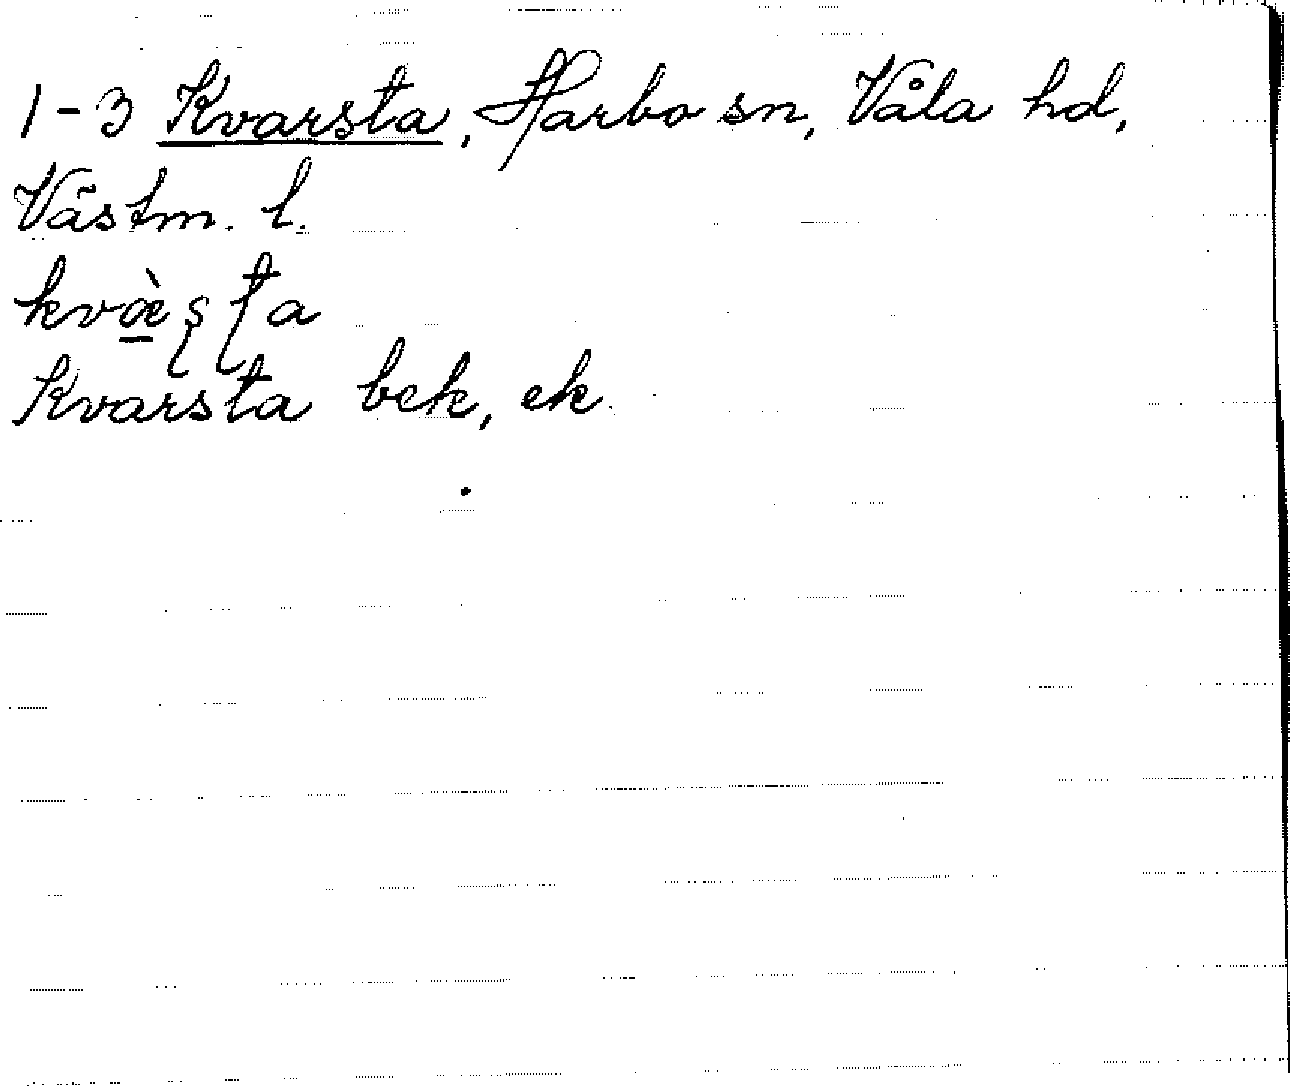 1-3 Kvarsta, Harbo sn, Våla hd,
Västm. l.
kvæ̠̀ʂʈa
Kvarsta bek, ek.